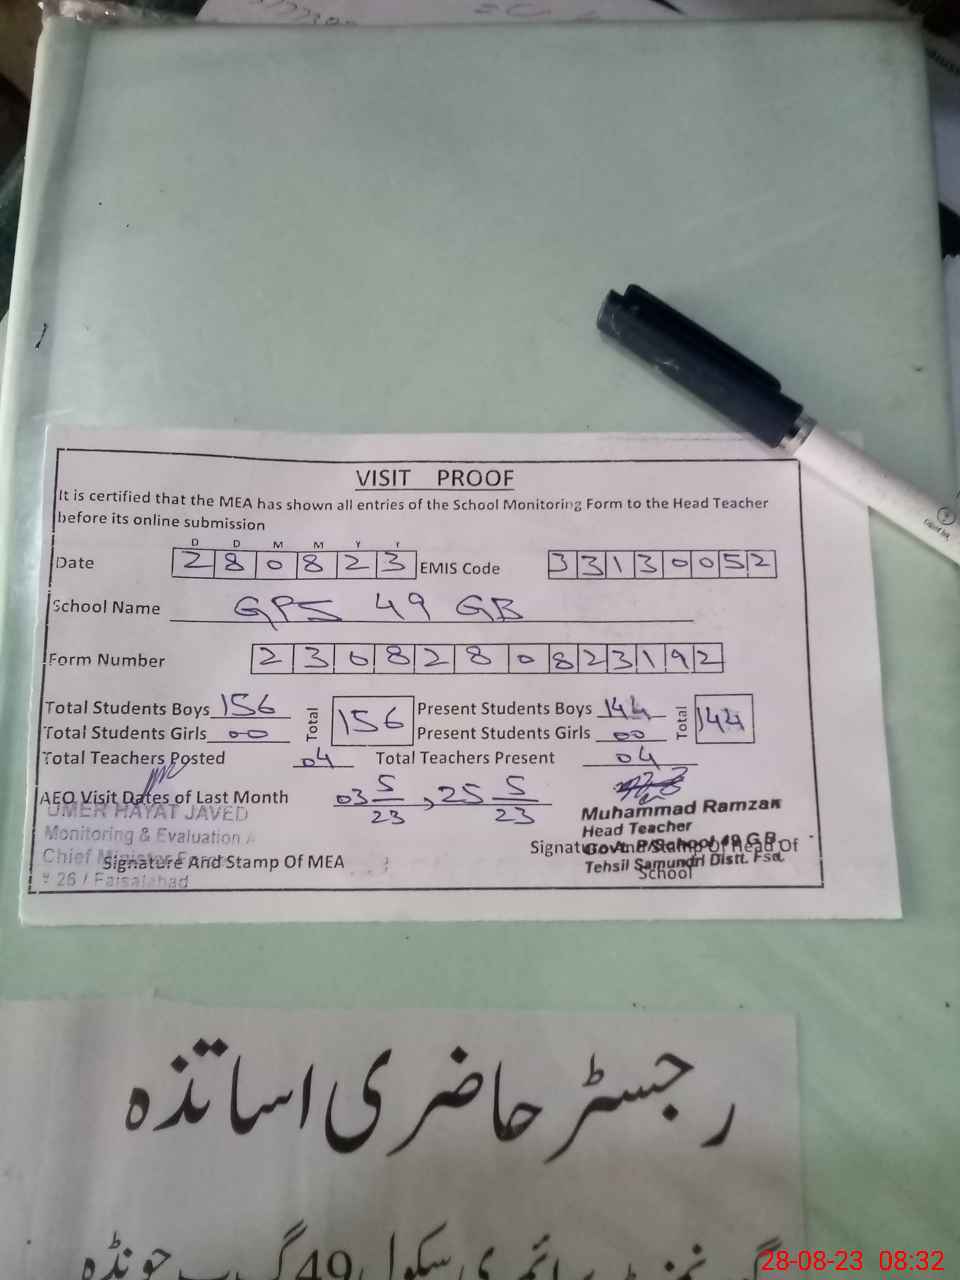 VISIT PROOF
It is certified that the MEA has shown all entries of the School Monitoring Form to the Head Teacher
before its online submission
D D M M Y Y
Date 280823 EMIS Code 33130052
School Name GPS 49 GB
Form Number 2308280823192
Total Students Boys 156 Total 156 Present Students Boys 144 Total 144
Total Students Girls 00 Present Students Girls 00
Total Teachers Posted 04 Total Teachers Present 04
AEO Visit Dates of Last Month 03 5/23, 25 5/23
UMER HAYAT JAVED
Monitoring & Evaluation
Chief Minister
# 26 / Faisalabad
Signature And Stamp Of MEA
Muhammad Ramzan
Head Teacher
Govt. P/School 49 G.B
Tehsil Samundri Distt. Fsd.
Signature And Stamp Of Head Of
School
رجسٹر حاضری اساتذہ
گورنمنٹ پرائمری سکول 49 گ ب جونڈہ
28-08-23 08:32